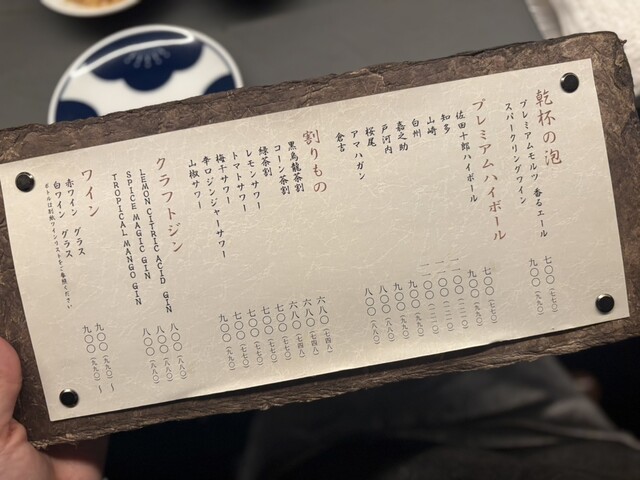 乾杯の泡
プレミアムモルツ 香るエール 七〇〇(七七〇)
スパークリングワイン 九〇〇(九九〇)
プレミアムハイボール
佐田十郎ハイボール 七〇〇(七七〇)
知多 九〇〇(九九〇)
山崎
白州
嘉之助
戸河内 九〇〇(九九〇)
桜尾 九〇〇(九九〇)
アマハガン 八〇〇(八八〇)
倉吉 八〇〇(八八〇)
割りもの
黒烏龍茶割 六八〇(七四八)
コーン茶割 六八〇(七四八)
緑茶割 六八〇(七四八)
レモンサワー 七〇〇(七七〇)
トマトサワー 七〇〇(七七〇)
梅干サワー 七〇〇(七七〇)
辛口ジンジャーサワー 七〇〇(七七〇)
山椒サワー 九〇〇(九九〇)
クラフトジン
LEMON CITRIC ACID GIN 八〇〇(八八〇)
SPICE MAGIC GIN 八〇〇(八八〇)
TROPICAL MANGO GIN 八〇〇(八八〇)
ワイン
赤ワイン グラス 九〇〇(九九〇)〜
白ワイン グラス 九〇〇(九九〇)〜
ボトルは別紙ワインリストをご参照ください